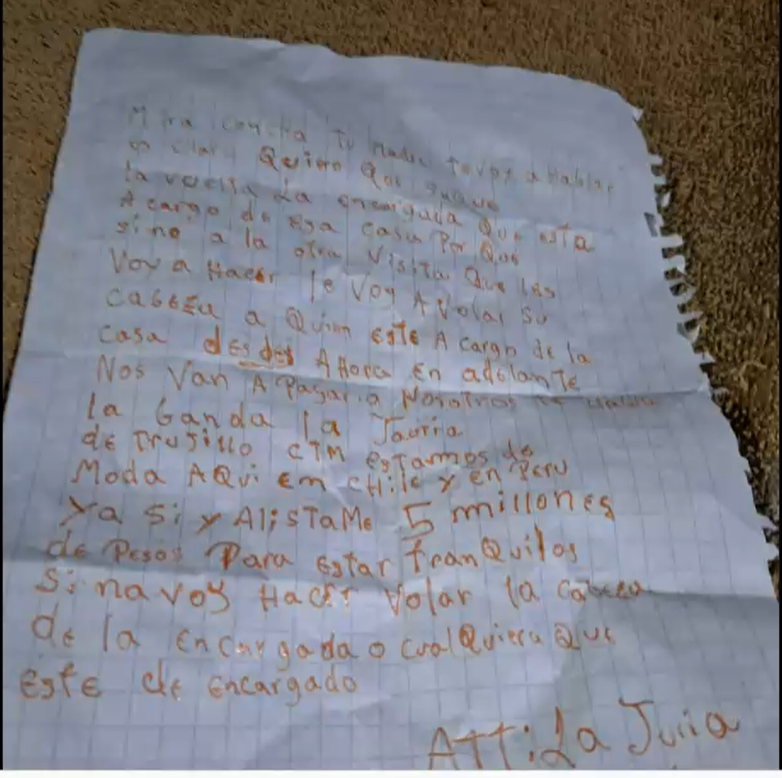 Mira concha tu Madre te voy a Hablar
Claro Quiero Que
la vuelta La encargada Que esta
A cargo de esa casa Por Que
sino a la otra Visita Que les
Voy a Hacer le Voy A Volar Su
cabeza a Quien este A cargo de la
casa desdes Ahora En adelante
Nos Van A Pagar a Nosotros
la banda la Jauria
de Trujillo CTM estamos de
Moda AQui Em CHile y en Peru
Ya Si y AlisTaMe 5 millones
de Pesos Para Estar tranQuilos
Si na voy Hacer Volar la cabeza
de la encargada o cualQuiera Que
este de encargado
ATT: La Juria